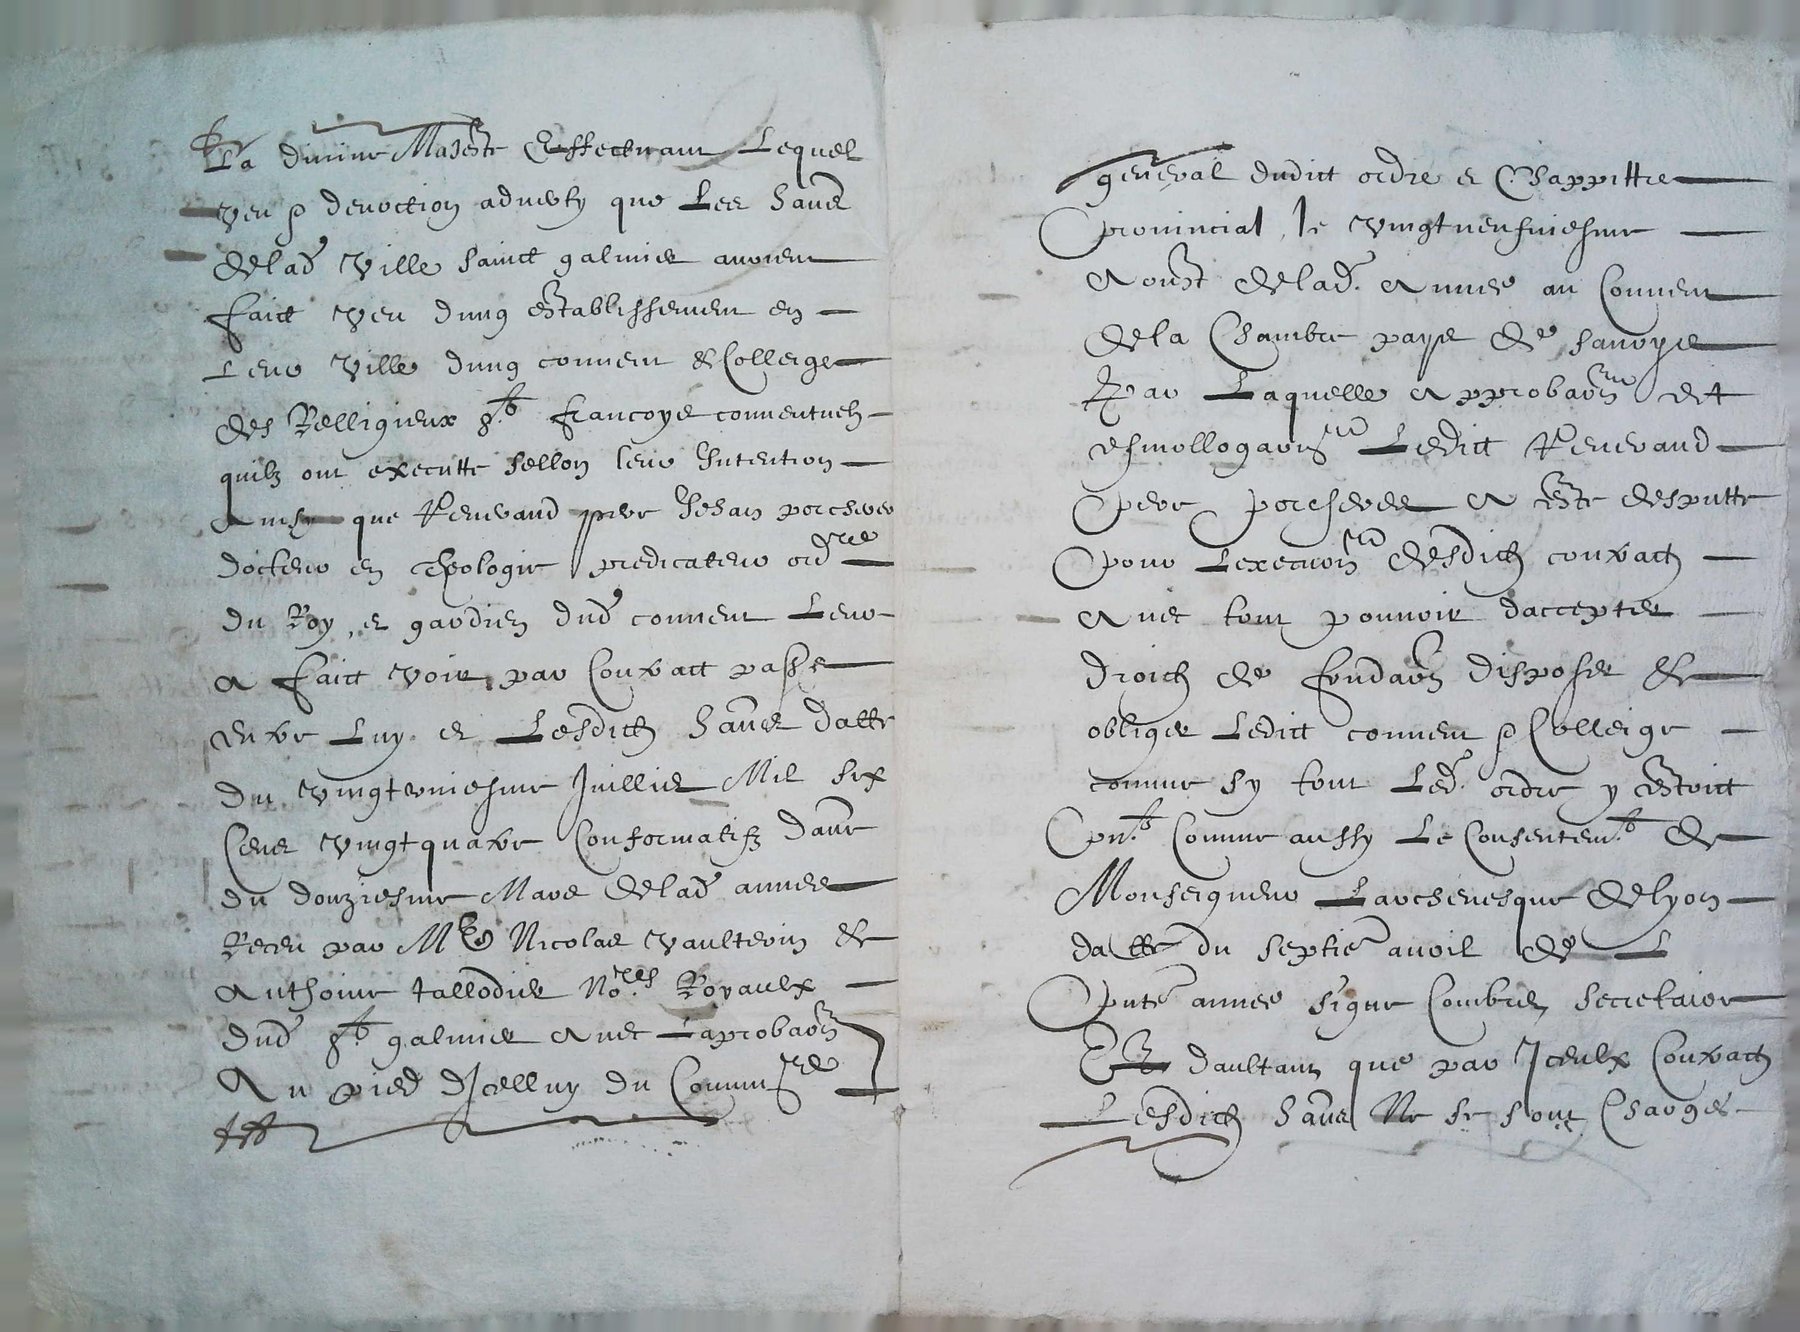 La divine Majeste Effectuant Lequel
veu & devoction adverty que Les habᵗˢ
de lad. ville sainct galmier avoient
faict veu dung establissement en
Leur ville dung couvent & Colleige
des Relligieux sᵗ francoys conventuelz
quilz ont executte sellon leur Intention
Ainsy que Reverand pere Jehan porcherer
docteur en theologie predicateur ordʳᵉ
du Roy, et gardien dud. couvent Leur
a faict voir par Contract passe
entre Luy et Lesdictz habᵗˢ datte
du vingtroniesme Juillier Mil six
Cens vingt quatre Conformatifz daultre
du douziesme Mars de lad. annee
Receu par Mᵉˢ Nicolas vaulterin &
Anthoine tallodier Noʳᵉˢ Royaulx
dud. sᵗ galmier avec Laprobaᵒⁿ
Au pied dIcelluy du Commissʳᵉ
general dudict ordre et Chappittre
provincial, le vingtneufviesme
Aoust de lad. Annee au Couvent
de la Chambre pays de savoye
Par Laquelle Approbaᵒⁿ et
esmollogaᵒⁿ Ledict Reverand
Pere porcherer A este desputte
pour Lexecuᵒⁿ desdictz contractz
Avec tout pouvoir daccepter
droictz de fondaᵒⁿ disposer &
obliger Ledict couvent & Colleige
comme sy tout Led. ordre y estoict
pnᵗ Comme aussy Le Consentemᵗ de
Monseigneur Larchevesque de lyon
datte du septieᵉ avril de L
pnteᵉ annee signe Combet, secretaire
Et daultant que par Iceulx Contractz
Lesdictz habᵗˢ Ne se sont Charges